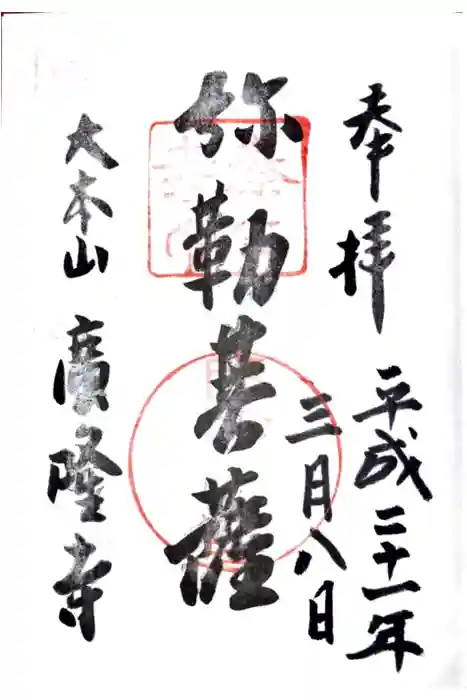 奉拝
平成二十一年
三月八日
弥勒菩薩
大本山 廣隆寺